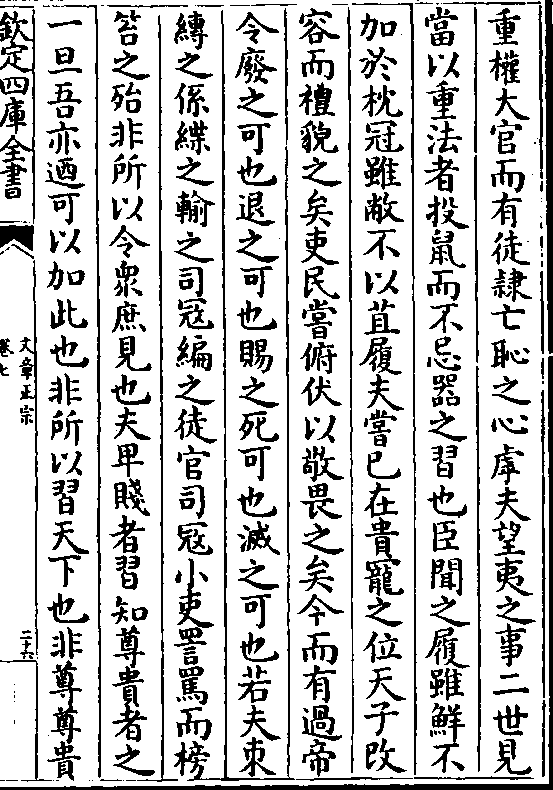 重權大官而有徒隷亡恥之心虖夫望夷之事二世見
當以重法者投鼠而不忌器之習也臣聞之履雖鮮不
加於枕冠雖敝不以苴履夫嘗已在貴寵之位天子改
容而禮貌之矣吏民嘗俯伏以敬畏之矣今而有過帝
令廢之可也退之可也賜之死可也滅之可也若夫束
縛之係緤之輸之司寇編之徒官司寇小吏詈罵而榜
笞之殆非所以令衆庶見也夫卑賤者習知尊貴者之
一旦吾亦迺可以加此也非所以習天下也非尊尊貴
欽定四庫全書
文章正宗
卷七
二十六